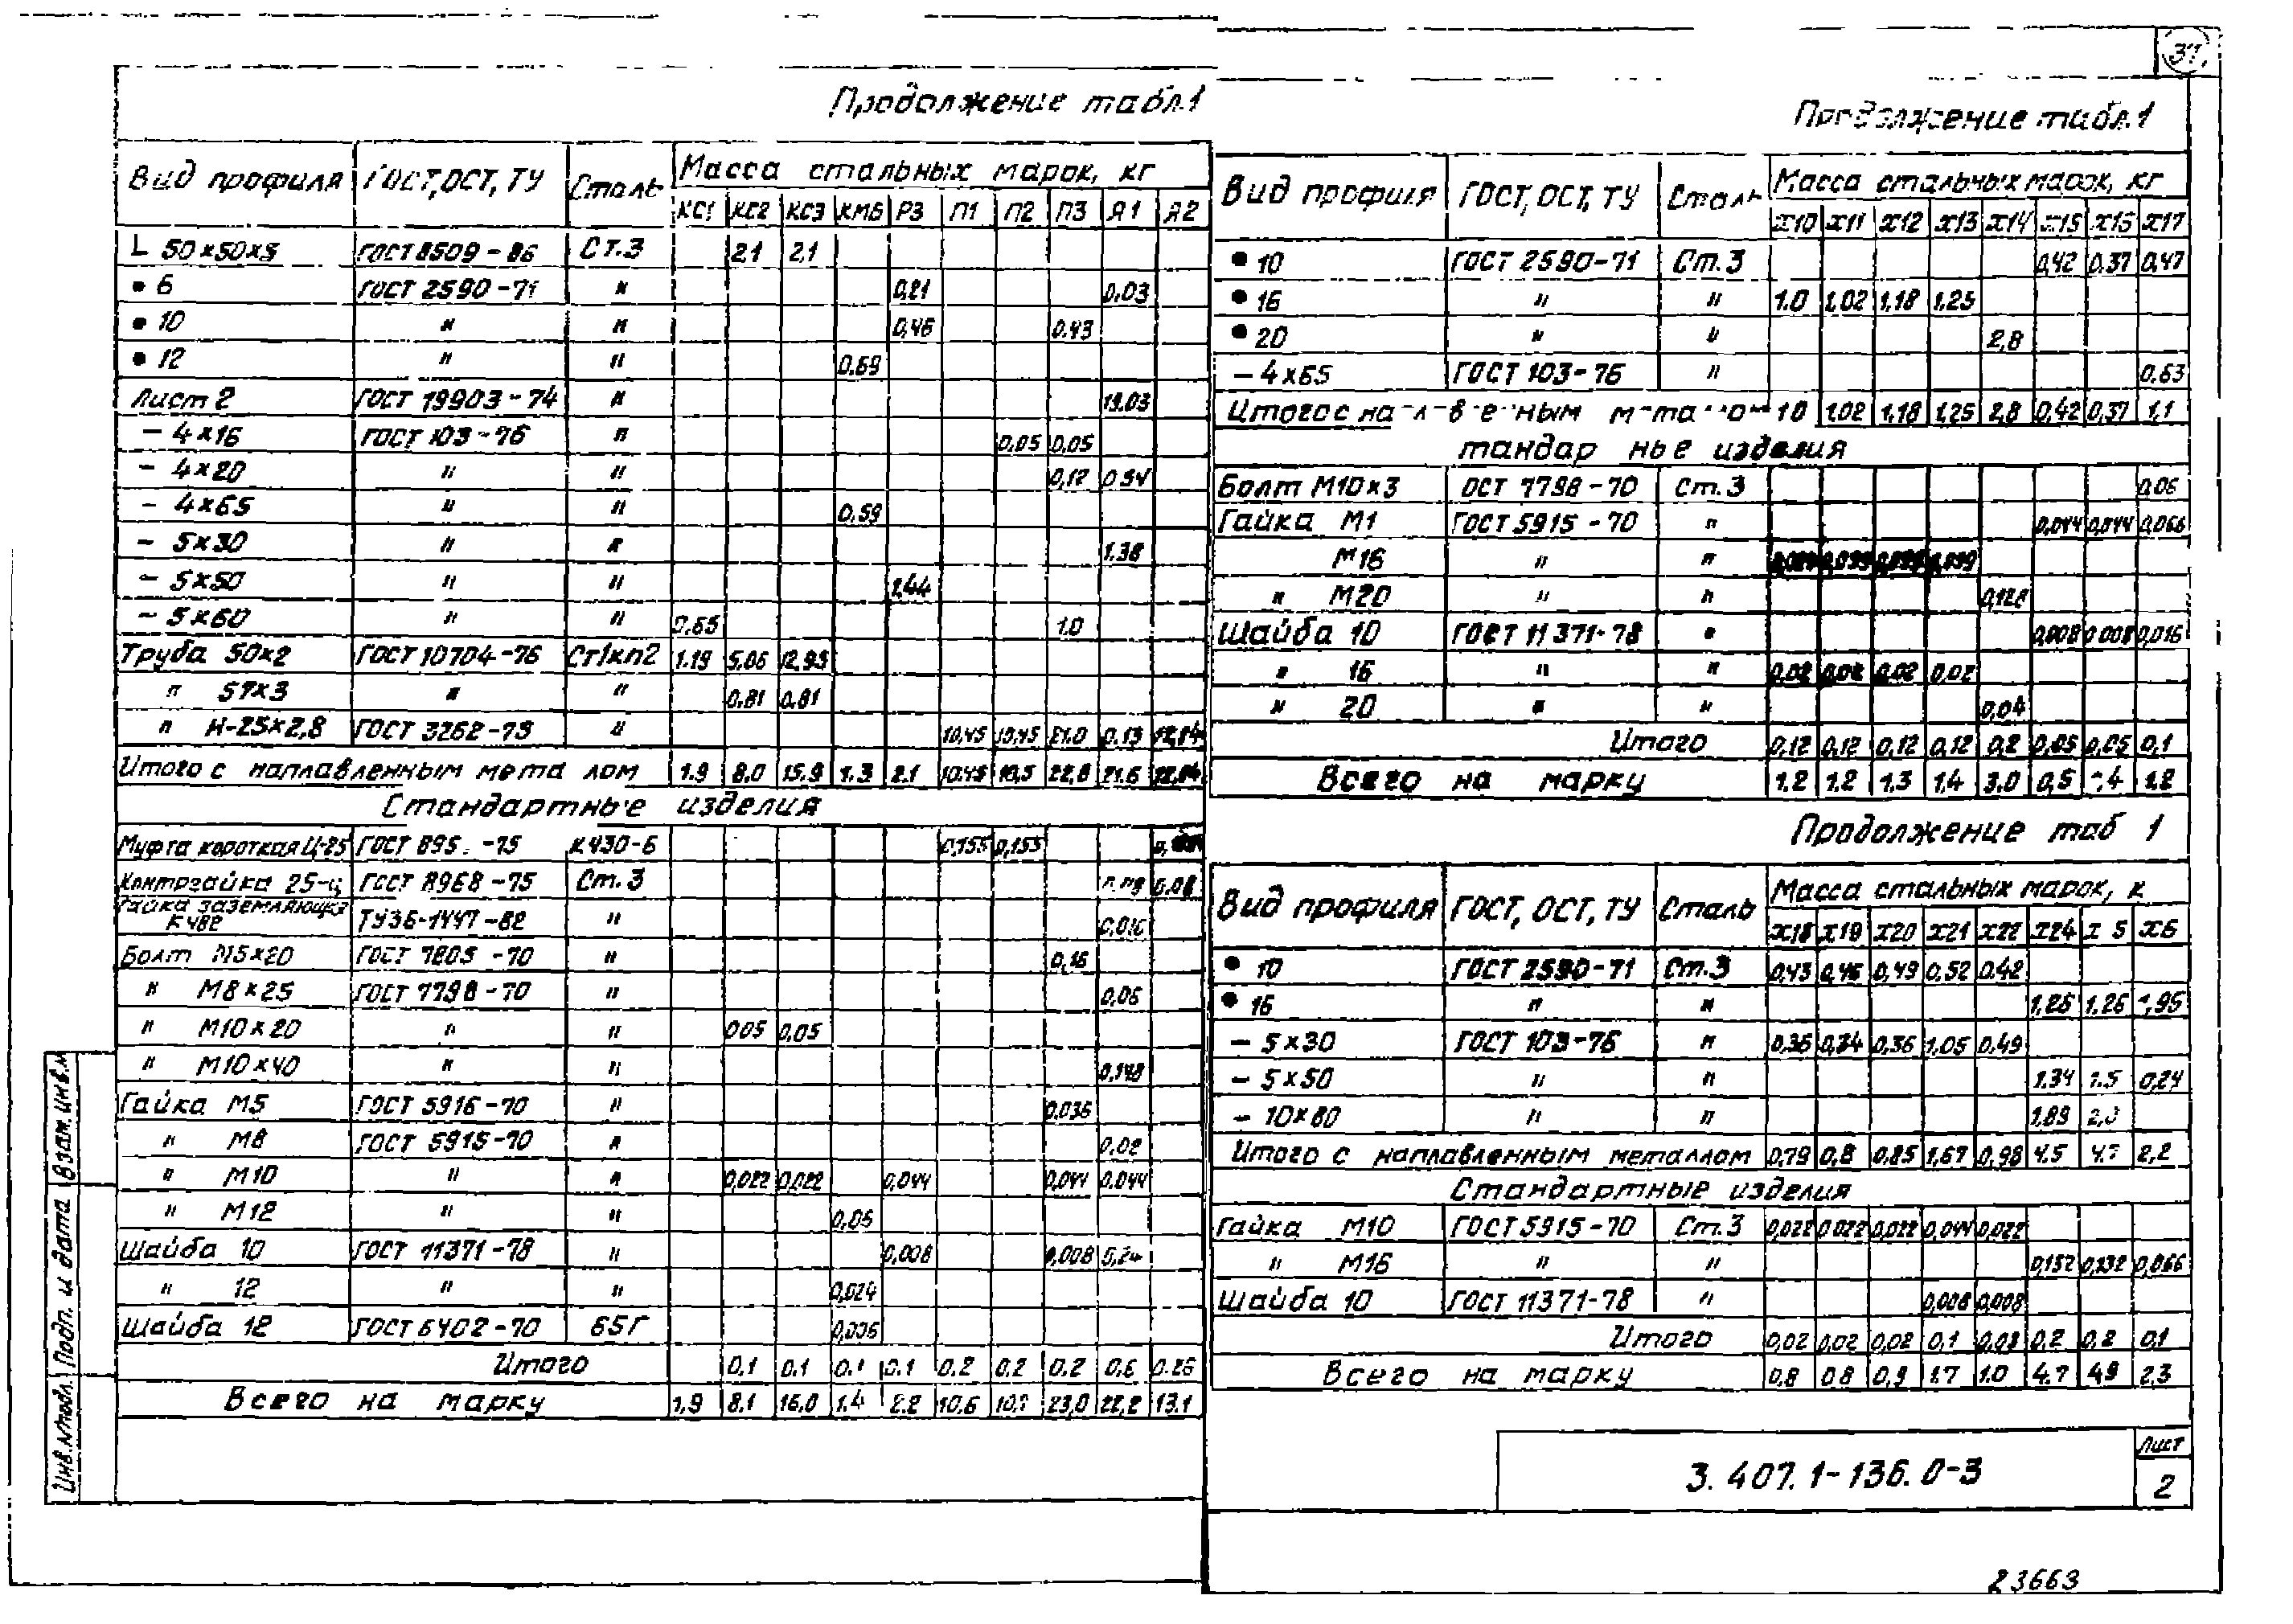 37
Продолжение табл.1
Вид профиля ГОСТ, ОСТ, ТУ Сталь Масса стальных марок, кг
КС1 КС2 КС3 КМ5 Р3 П1 П2 П3 Я1 Я2
L 50×50×5 ГОСТ 8509-86 Ст.3 2,1 2,1
• 6 ГОСТ 2590-71 " 0,21 0.03
• 10 " " 0,46 0.43
• 12 " " 0.69
Лист 2 ГОСТ 19903-74 " 19.03
- 4×16 ГОСТ 103-76 " 0,05 0,05
- 4×20 " " 0,17 0.94
- 4×65 " " 0,59
- 5×30 " " 1.38
- 5×50 " " 1,44
- 5×60 " " 0.65 1.0
Труба 50×2 ГОСТ 10704-76 Ст1кп2 1.19 5,06 12,93
" 57×3 " " 0.81 0.81
" Н-25×2,8 ГОСТ 3262-75 " 10,45 10,45 21.0 0.13
Итого с наплавленным мета лом 1.9 8,0 15.9 1.3 2.1 10.45 10,5 22,8 21.6
Стандартные изделия
Муфта короткая Ц-25 ГОСТ 895 -75 КЧ30-6 0,155 0,155
Контргайка 25-ц ГОСТ 8968-75 Ст.3 0.08
Гайка заземляющая К482 ТУ36-1447-82 " 0,016
Болт М5×20 ГОСТ 7805-70 " 0,16
" М8×25 ГОСТ 7798-70 " 0,06
" М10×20 " " 0.05 0,05
" М10×40 " " 0,148
Гайка М5 ГОСТ 5916-70 " 0.036
" М8 ГОСТ 5915-70 " 0,02
" М10 " " 0,022 0,022 0,044 0,044 0,044
" М12 " " 0,05
Шайба 10 ГОСТ 11371-78 " 0,008 0,008 0,24
" 12 " " 0,024
Шайба 12 ГОСТ 6402-70 65Г 0,036
Итого 0.1 0.1 0.1 0.1 0.2 0.2 0.2 0.6 0.26
Всего на марку 1,9 8.1 16.0 1.4 2.2 10,6 10,7 23,0 22,2 13.1
Продолжение табл.1
Вид профиля ГОСТ, ОСТ, ТУ Сталь Масса стальных марок, кг
Х10 Х11 Х12 Х13 Х14 Х15 Х16 Х17
• 10 ГОСТ 2590-71 Ст.3 0,42 0.37 0,47
• 16 " " 1.0 1,02 1,18 1.25
• 20 " " 2,8
- 4×65 ГОСТ 103-76 " 0.63
Итого с 1.0 1.02 1,18 1,25 2,8 0,42 0,37 1,1
тандар ные изделия
Болт М10×3 ОСТ 7798-70 Ст.3 0,06
Гайка М1 ГОСТ 5915-70 " 0,044 0,044 0,066
М16 " " 0,099 0,099 0,099 0,099
" М20 " " 0,128
Шайба 10 ГОСТ 11371-78 " 0,008 0,008 0,016
" 16 " " 0,02 0,02 0,02 0,02
" 20 " " 0,04
Итого 0,12 0,12 0,12 0,12 0,2 0,05 0,05 0,1
Всего на марку 1.2 1.2 1,3 1,4 3.0 0,5 .4 1.2
Продолжение таб 1
Вид профиля ГОСТ, ОСТ, ТУ Сталь Масса стальных марок, к
Х18 Х19 Х20 Х21 Х22 Х24 Х 5 Х6
• 10 ГОСТ 2590-71 Ст.3 0,43 0,46 0,49 0,52 0,42
• 16 " " 1,26 1,26 1,95
- 5×30 ГОСТ 103-76 " 0,36 0,34 0,36 1,05 0,49
- 5×50 " " 1.34 1.5 0,24
- 10×80 " " 1,89 2,0
Итого с наплавленным металлом 0,79 0,8 0,85 1,67 0,98 4.5 4.7 2,2
Стандартные изделия
Гайка М10 ГОСТ 5915-70 Ст.3 0,022 0,022 0,022 0,044 0,022
" М16 " " 0,132 0,132 0,066
Шайба 10 ГОСТ 11371-78 " 0,008 0,008
Итого 0,02 0,02 0,02 0,1 0,03 0,2 0,2 0,1
Всего на марку 0,8 0,8 0,9 1.7 1.0 4.7 4,9 2,3
Инв.№подл. Подп. и дата Взам.инв.№
3.407.1-136.0-3
Лист
2
23663